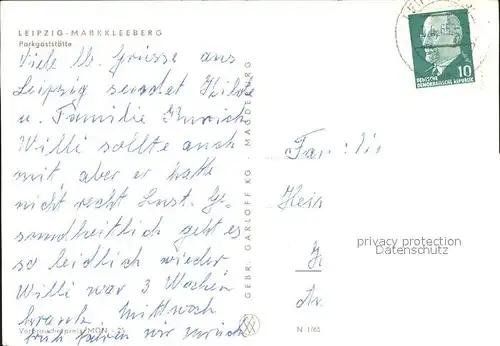 LEIPZIG-MARKKLEEBERG
Parkgaststätte
Viele lb. Grüsse aus
Leipzig sendet Hilde
u. Familie
Willi sollte auch
mit, aber er hatte
nicht recht Lust. Ge-
sundheitlich geht es
so leidlich wieder
Willi war 3 Wochen
krank. Mittwoch
früh fahren wir zurück
Verbraucherpreis MDN -,25
GEBR. GARLOFF KG · MAGDEBURG
N 1/65
10
DEUTSCHE
DEMOKRATISCHE REPUBLIK
Heis
privacy protection
Datenschutz